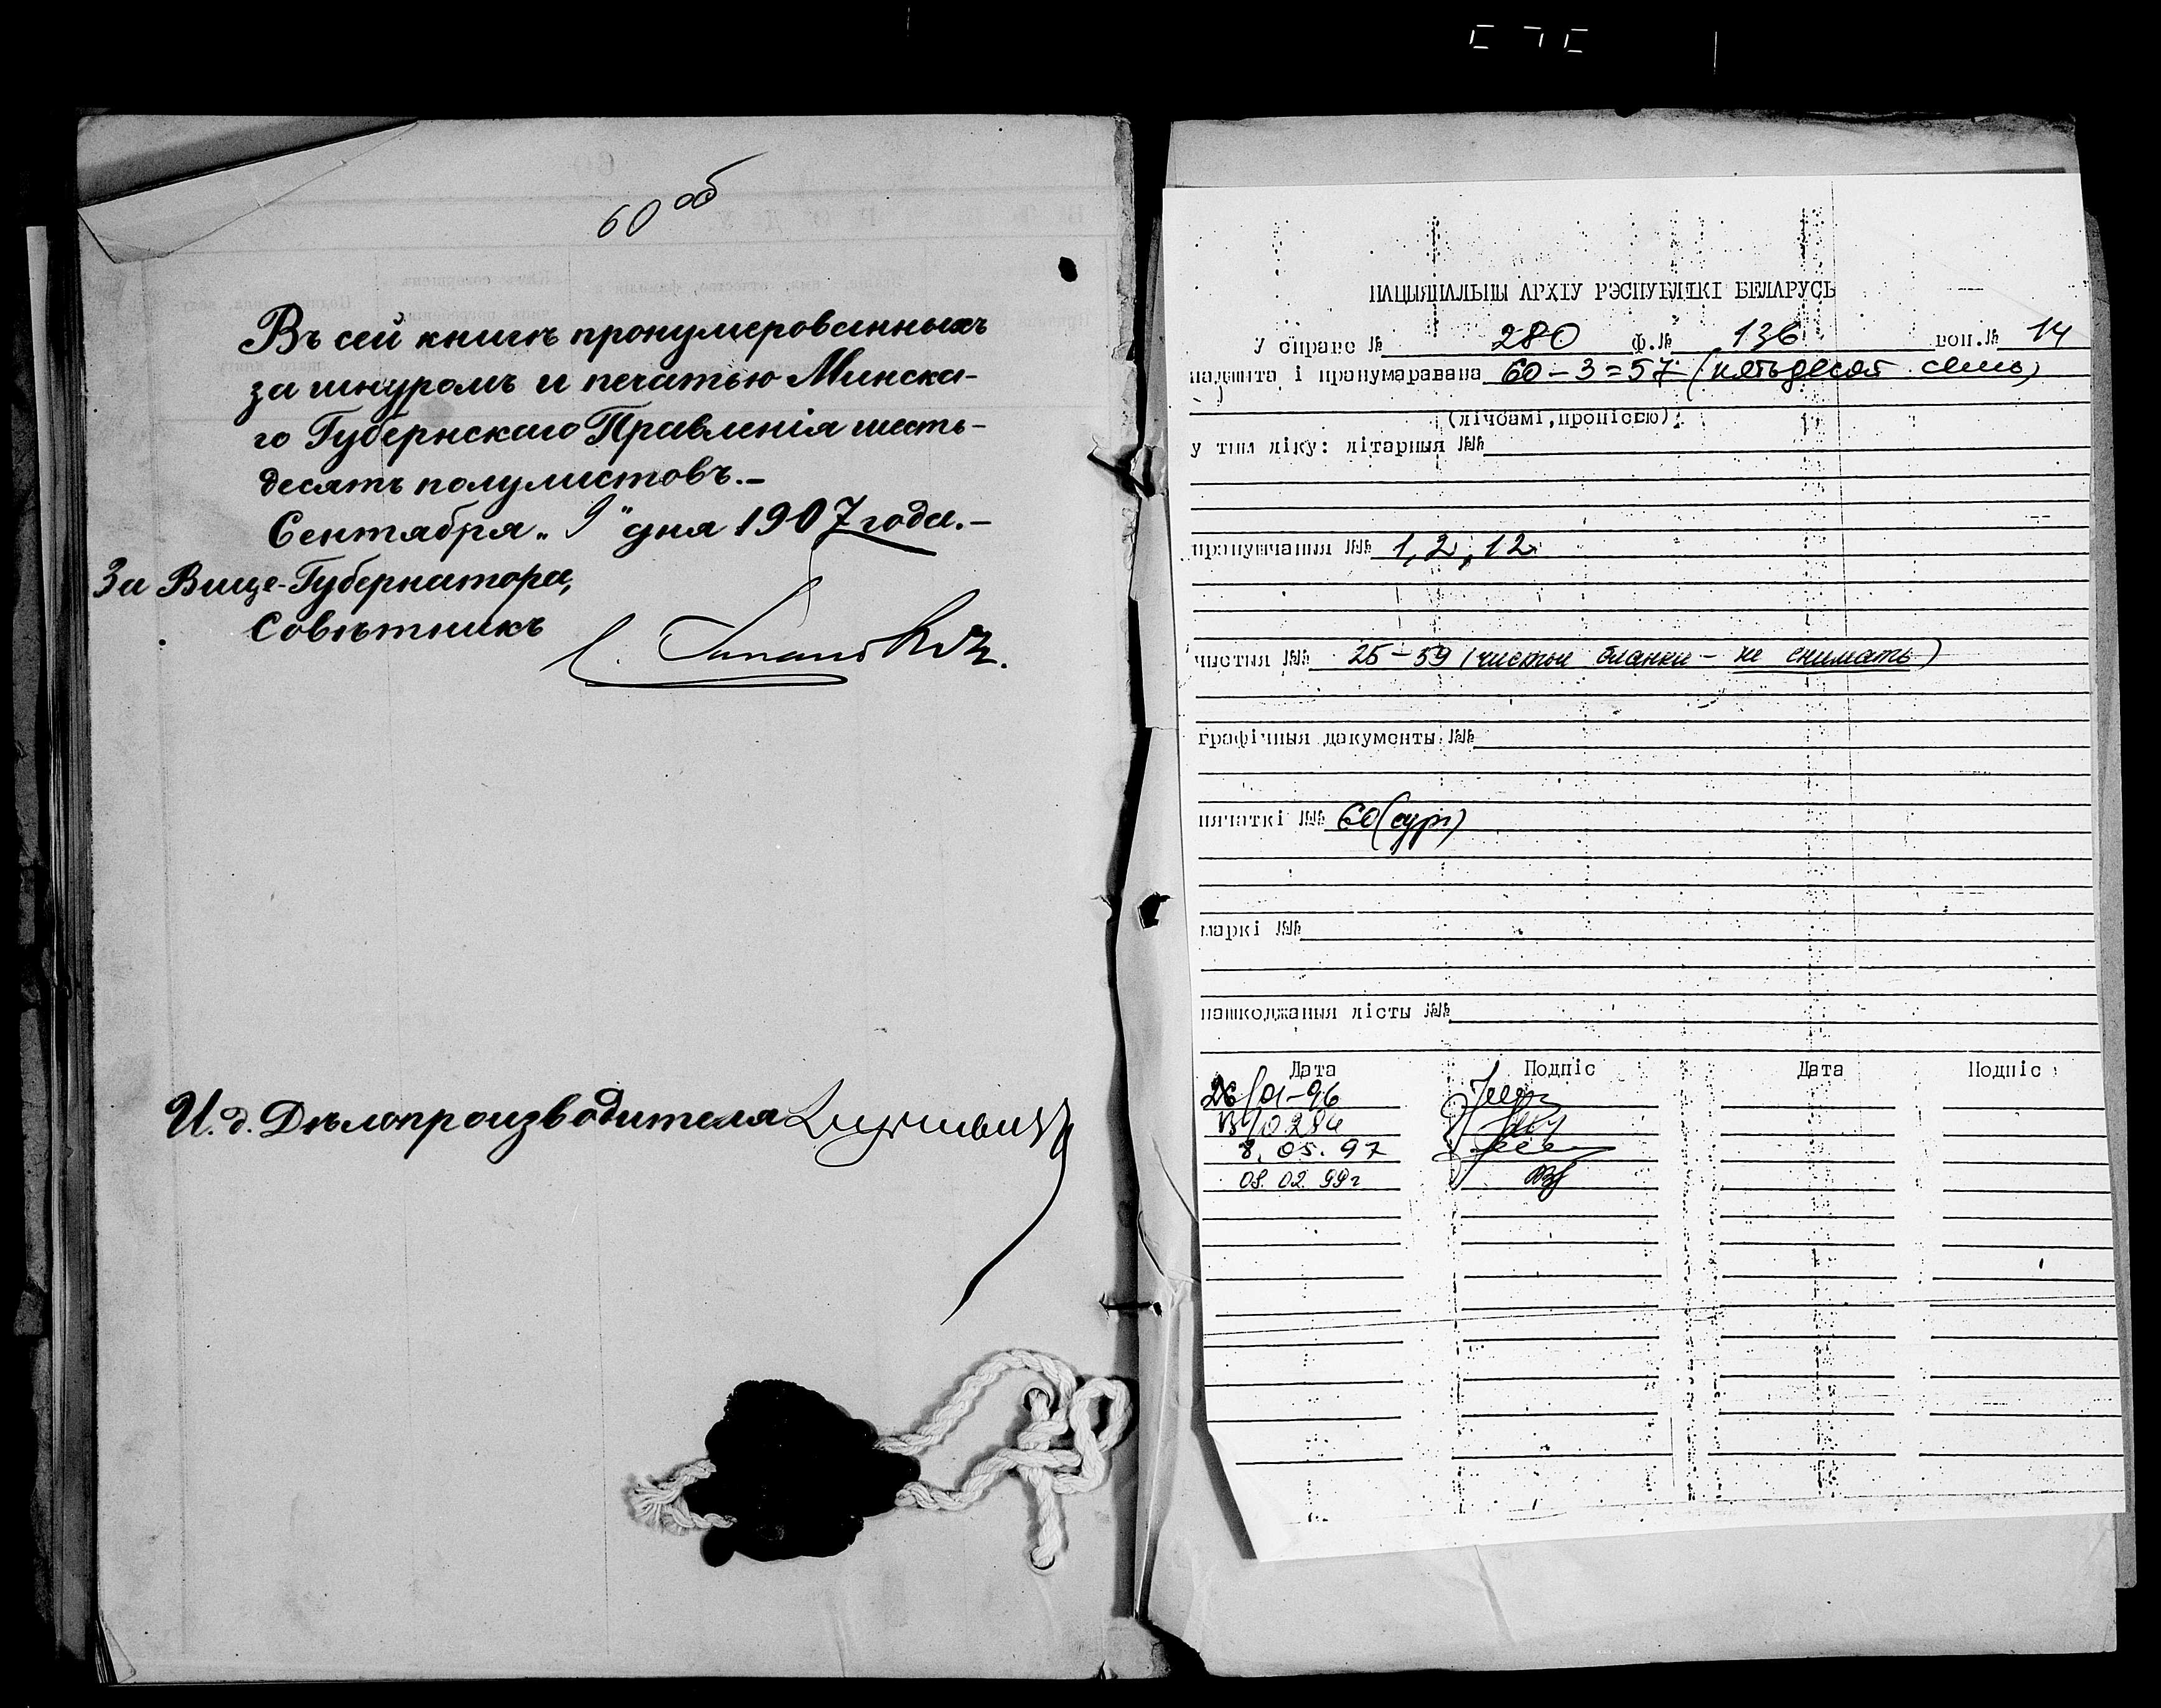 60 об
Въ сей книгѣ пронумерованныхъ
за шнуромъ и печатью Минска-
го Губернскаго Правленія шесть-
десятъ полулистовъ.—
Сентября „9" дня 1907 года.—
За Вице-Губернатора,
Совѣтникъ
И. д. Дѣлопроизводителя
НАЦЫЯНАЛЬНЫ АРХІУ РЭСПУБЛІКІ БЕЛАРУСЬ
У справе № 280 ф.№ 136 воп.№ 14
падшита і пранумаравана 60-3=57 (пятьдесят семь)
(лічбамі,пропіссю)
у тым ліку: літарныя №№
прапушчаныя №№ 1,2,12
чыстыя №№ 25-59 (чистые бланки - не снимать)
графічныя дакументы №№
пячаткі №№ 60 (сург)
маркі №№
пашкоджаныя лісты №№
Дата Подпіс Дата Подпіс
26/01-96
8.05.97
08.02.99г